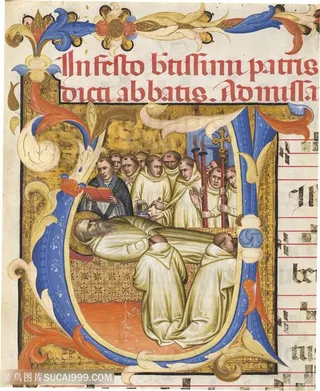 In festo btissimi patris
dicti abbatis. Ad missa
鸟图库 SUCAI999.COM